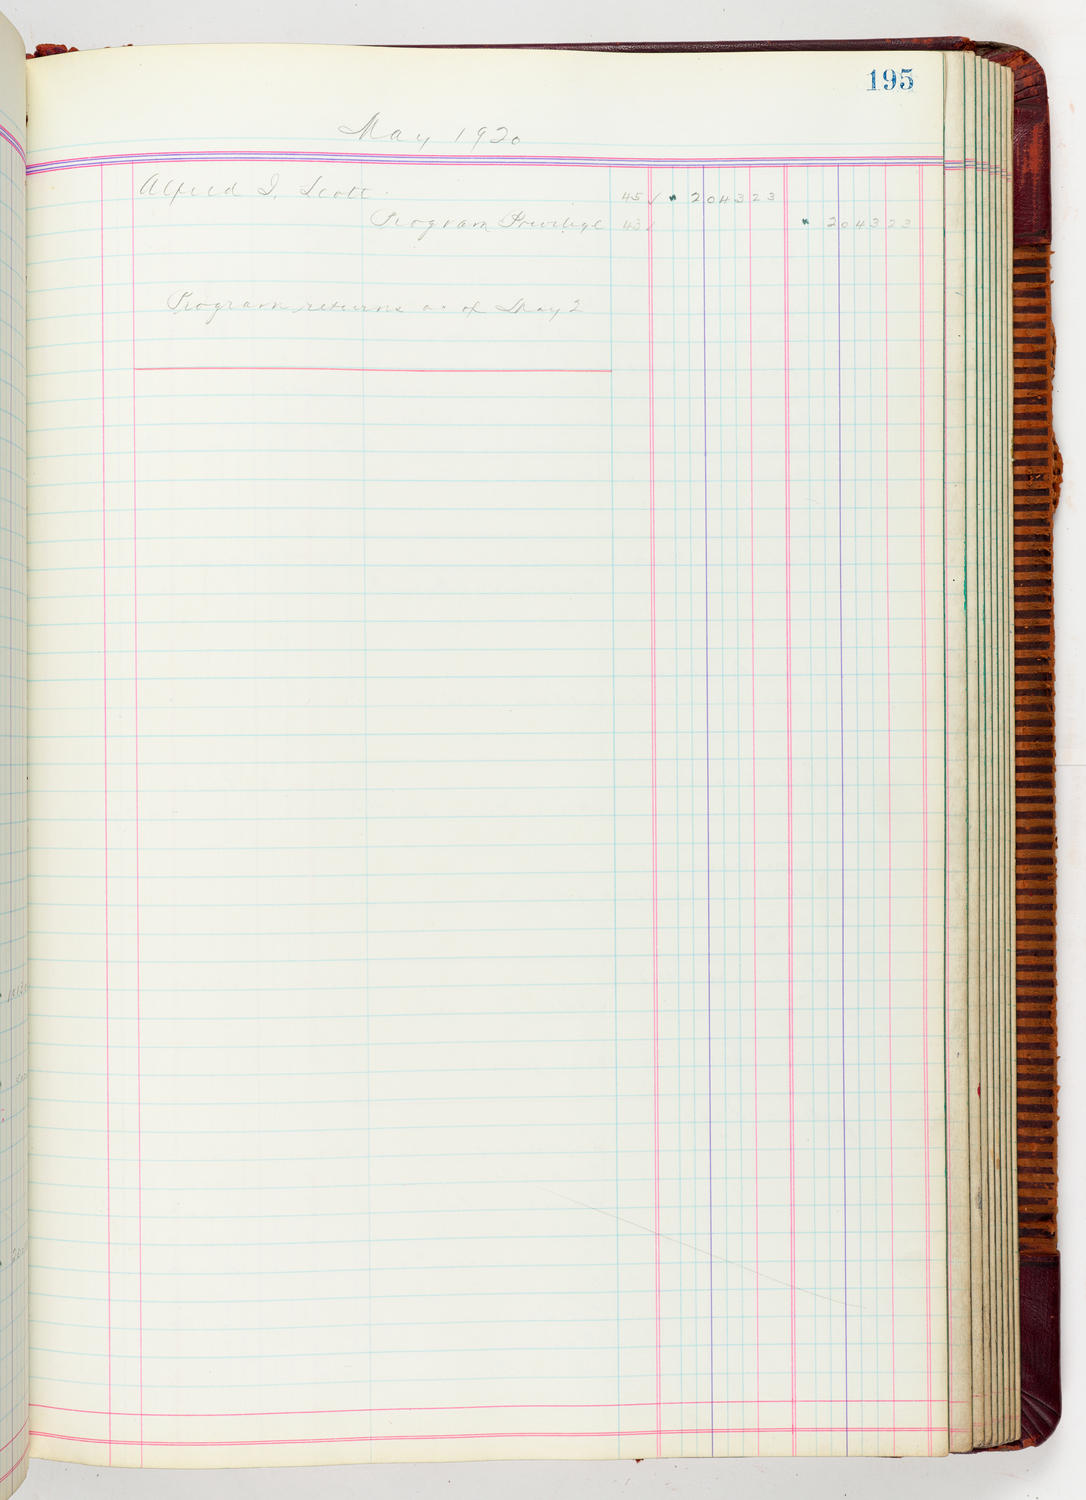 195
May 1920
Alfred I. Scott. 45 ✓ 2043 23
Program Privilege 43 ✓ 2043 23
Program returns as of May 2